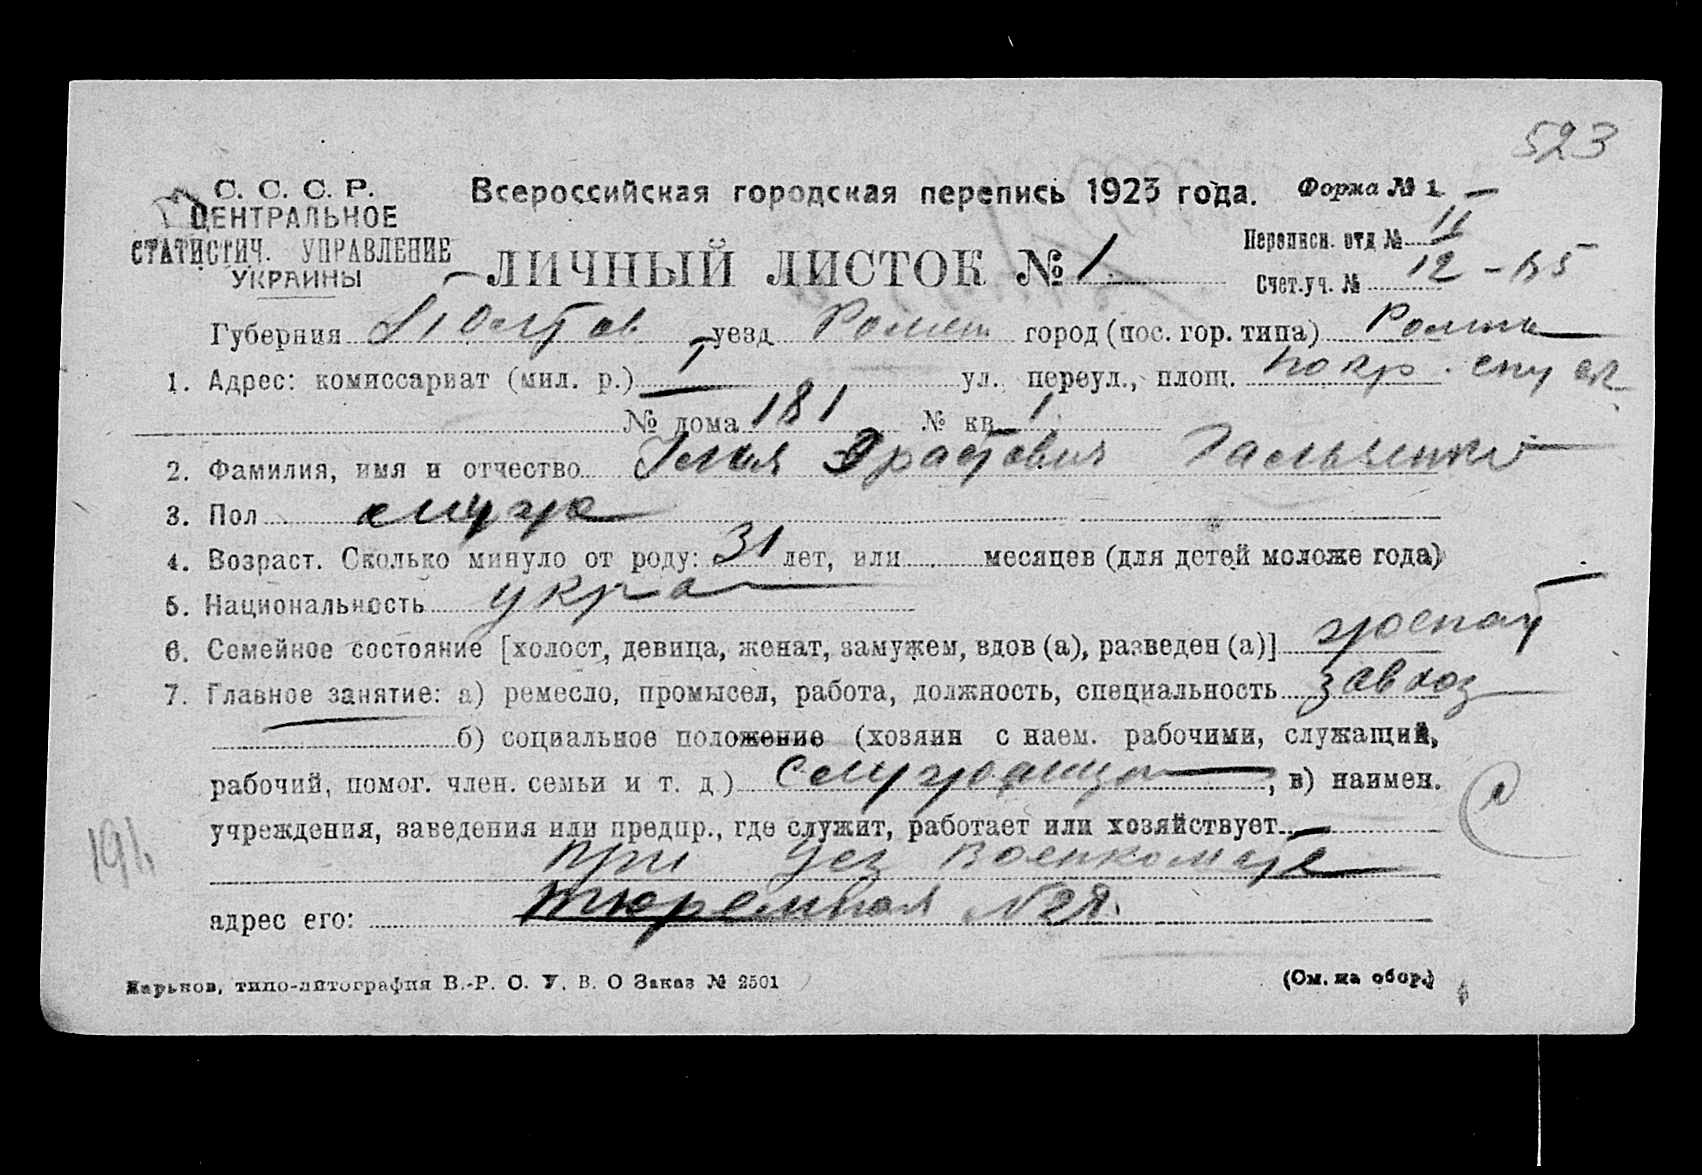 523
С. С. С. Р.
ЦЕНТРАЛЬНОЕ
СТАТИСТИЧ. УПРАВЛЕНИЕ
УКРАИНЫ
Всероссийская городская перепись 1923 года.
Форма № 1
Переписн. отд № 11
ЛИЧНЫЙ ЛИСТОК № 1.
Счет.уч. № 12
Губерния уезд Ромен город (пос. гор. типа) Ромны
1. Адрес: комиссариат (мил. р.) 1 ул., переул., площ. Покр.
№ дома 181 № кв. 1
2. Фамилия, имя и отчество Илия Эрастович
3. Пол муж
4. Возраст. Сколько минуло от роду: 31 лет, или месяцев (для детей моложе года)
5. Национальность укра
6. Семейное состояние [холост, девица, женат, замужем, вдов (а), разведен (а)] женат
7. Главное занятие: а) ремесло, промысел, работа, должность, специальность завхоз
б) социальное положение (хозяин с наем. рабочими, служащий,
рабочий, помог. член. семьи и т. д) служащий, в) наимен.
учреждения, заведения или предпр., где служит, работает или хозяйствует
При Уез Военкомате
адрес его: Тюремная №
191
Харьков, типо-литография В.-Р. С. У. В. О Заказ № 2501
(См. на обор.)